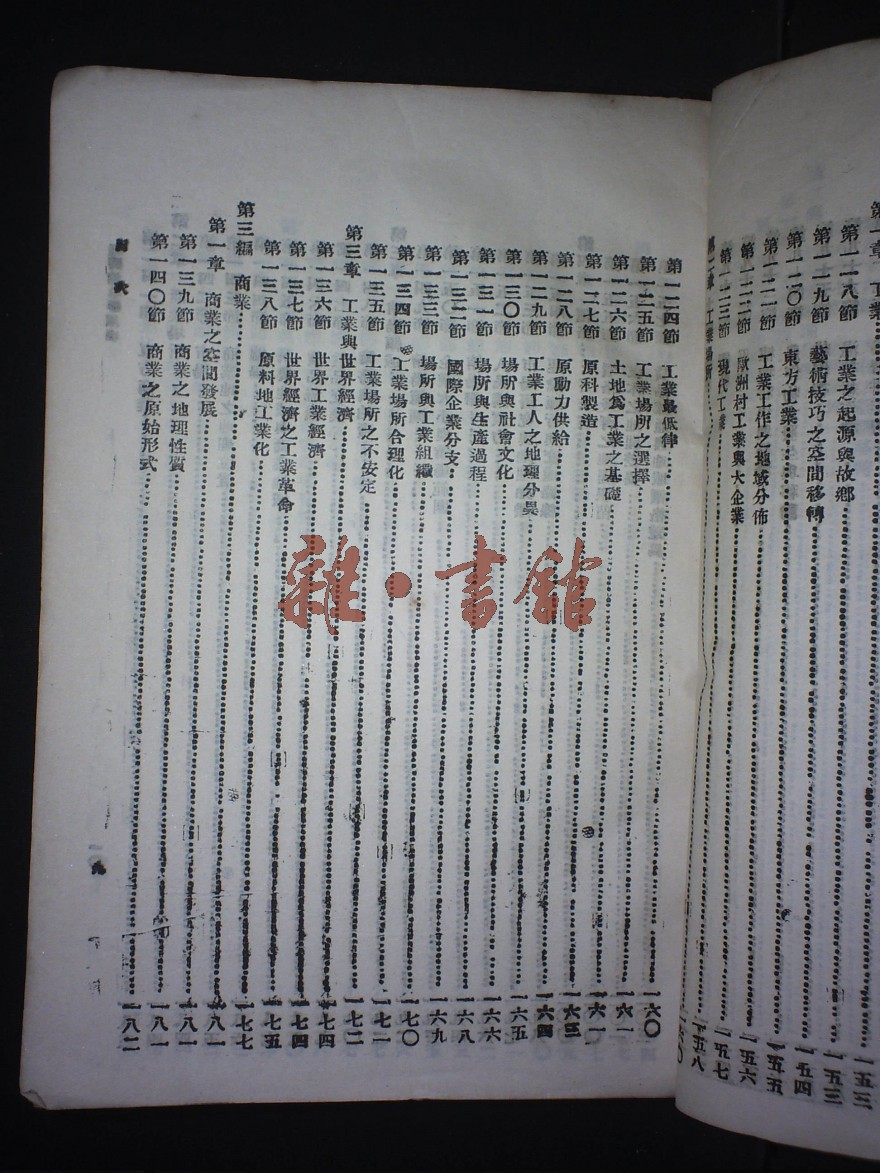 第一章 工業……一五三
第一一八節 工業之起源與故鄉……一五三
第一一九節 藝術技巧之空間移轉……一五四
第一二〇節 東方工業……一五五
第一二一節 工業工作之地域分佈……一五六
第一二二節 歐洲村工業與大企業……一五七
第一二三節 現代工業……一五八
第二章 工業場所……一六〇
第一二四節 工業最低律……一六〇
第一二五節 工業場所之選擇……一六一
第一二六節 土地爲工業之基礎……一六一
第一二七節 原料製造……一六三
第一二八節 原動力供給……一六四
第一二九節 工業工人之地理分異……一六五
第一三〇節 場所與社會文化……一六六
第一三一節 場所與生產過程……一六八
第一三二節 國際企業分支……一六九
第一三三節 場所與工業組織……一七〇
第一三四節 工業場所合理化……一七一
第一三五節 工業場所之不安定……一七二
第三章 工業與世界經濟……一七四
第一三六節 世界工業經濟……一七四
第一三七節 世界經濟之工業革命……一七五
第一三八節 原料地工業化……一七七
第三編 商業……一八一
第一章 商業之空間發展……一八一
第一三九節 商業之地理性質……一八一
第一四〇節 商業之原始形式……一八二
目 次
九
雜·書館